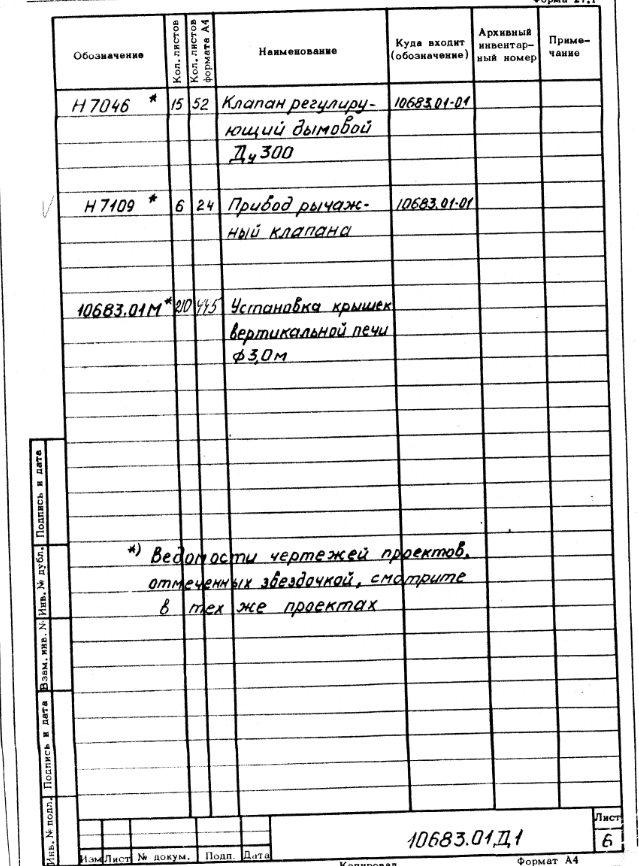 Форма 27.1
Обозначение
Кол. листов
Кол. листов формата А4
Наименование
Куда входит (обозначение)
Архивный инвентарный номер
Примечание
Н 7046 * 15 52 Клапан регулиру- 10683.01-01
ющий дымовой
Ду 300
Н 7109 * 6 24 Привод рычаж- 10683.01-01
ный клапана
10683.01М * 210 445 Установка крышек
вертикальной печи
ф 3,0м
*) Ведомости чертежей проектов,
отмеченных звездочкой, смотрите
в тех же проектах
Подпись и дата
Инв. № дубл.
Взам. инв. №
Подпись и дата
Инв. № подл.
Изм Лист № докум. Подп. Дата
10683.01.Д1
Лист
6
Копировал Формат А4